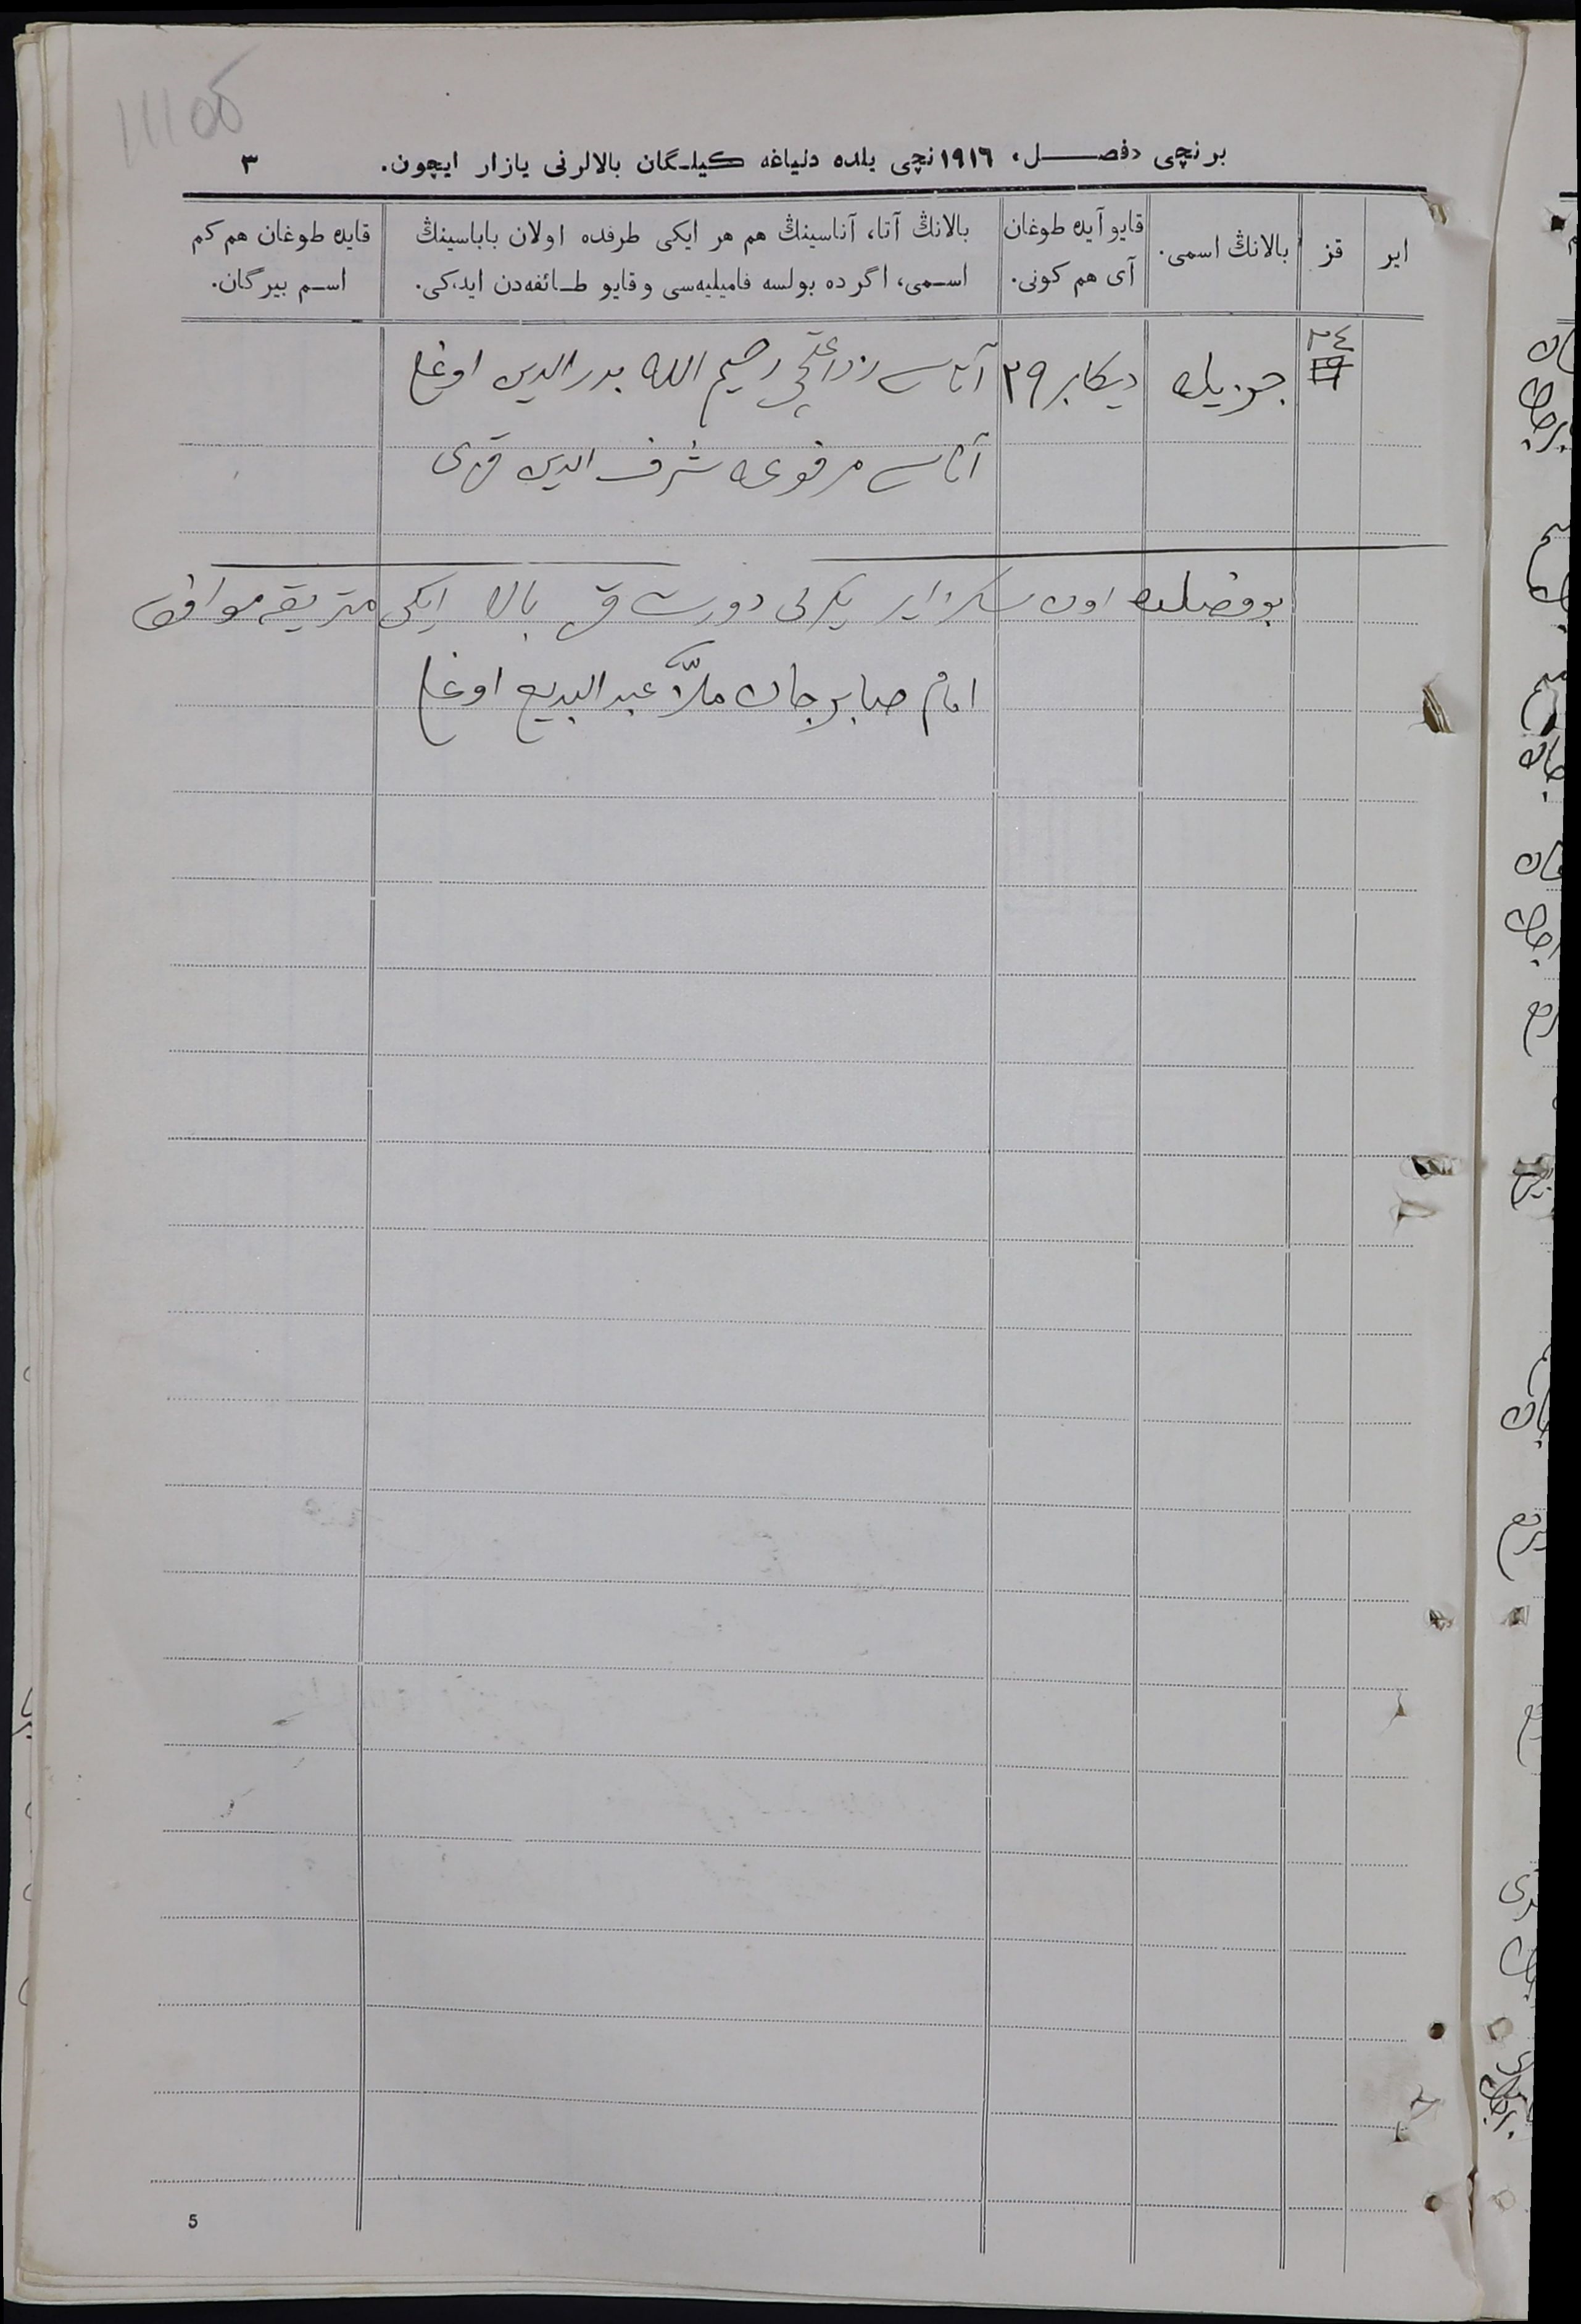 11106
برنچی «فصل» ١٩١٦نچی یلده دنیاغه کیلگان بالالرنی یازار ایچون. ٣
ایر
قز
بالانڭ اسمی.
قایو آیده طوغان
آی هم کونی.
بالانڭ آتا، آناسینڭ هم هر ایکی طرفده اولان باباسینڭ
اسمی، اگرده بولسه فامیلیه‌سی وقایو طائفه‌دن ایدکی.
قایده طوغان هم کم
اسم بیرگان.
٢٤
دیکابر ٢٩
آتاسی رحیم الله بدرالدین اوغلی
آناسی مرفوعه شرف الدین قزی
بوفصلده اون سکز ایر یکرمی دورت قز بالا ایکی متریقه موافق
امام صابرجان ملّا عبدالبدیع اوغلی
5